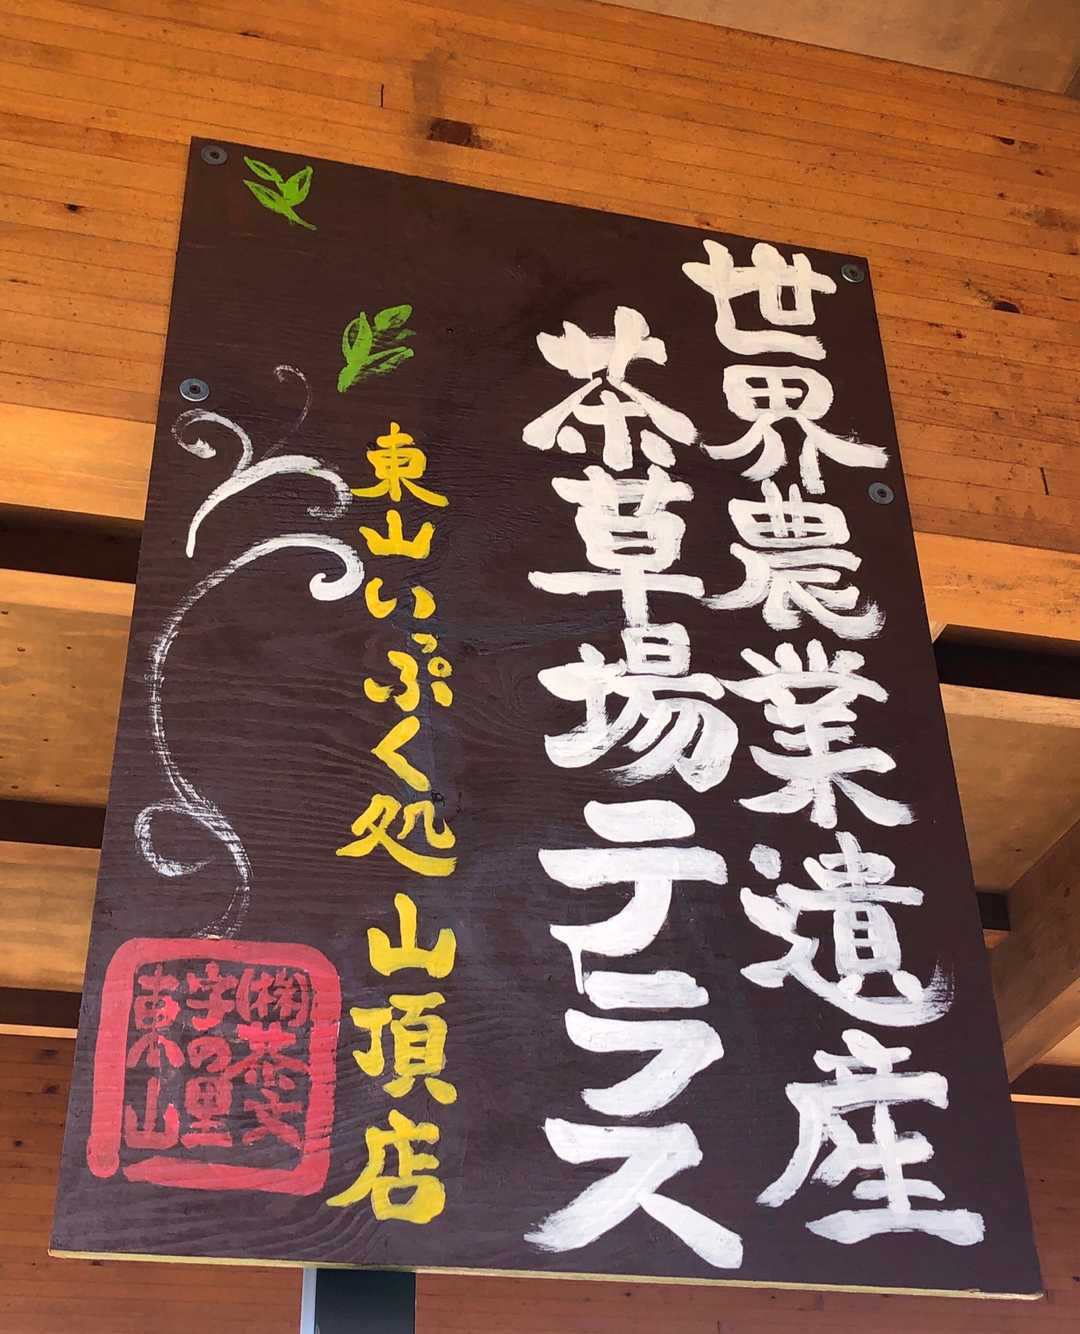 世界農業遺産
茶草場テラス
東山いっぷく処 山頂店
㈱茶文
字の里
東山